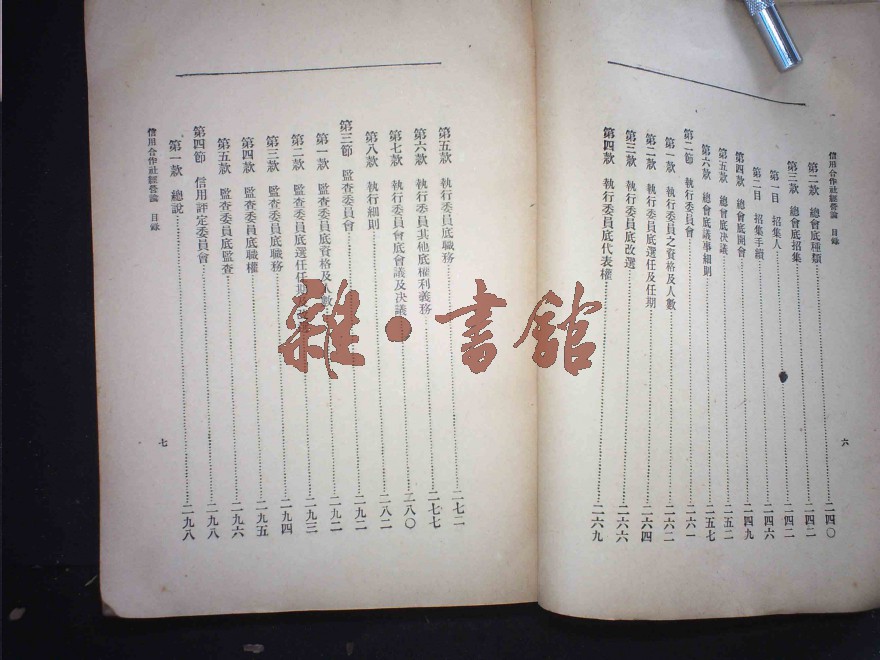 信用合作社經營論 目錄
第二款 總會底種類 二四〇
第三款 總會底招集 二四二
第一目 招集人 二四二
第二目 招集手續 二四六
第四款 總會底開會 二四九
第五款 總會底決議 二五二
第六款 總會底議事細則 二五七
第二節 執行委員會 二六一
第一款 執行委員之資格及人數 二六二
第二款 執行委員底選任及任期 二六四
第三款 執行委員底改選 二六六
第四款 執行委員底代表權 二六九
六
第五款 執行委員底職務 二七二
第六款 執行委員其他底權利義務 二七七
第七款 執行委員會底會議及決議 二八〇
第八款 執行細則 二八二
第三節 監查委員會 二九二
第一款 監查委員底資格及人數 二九二
第二款 監查委員底選任任期及改選 二九三
第三款 監查委員底職務 二九四
第四款 監查委員底職權 二九五
第五款 監查委員底監查 二九六
第四節 信用評定委員會 二九八
第一款 總說 二九八
信用合作社經營論 目錄
七
雜·書館